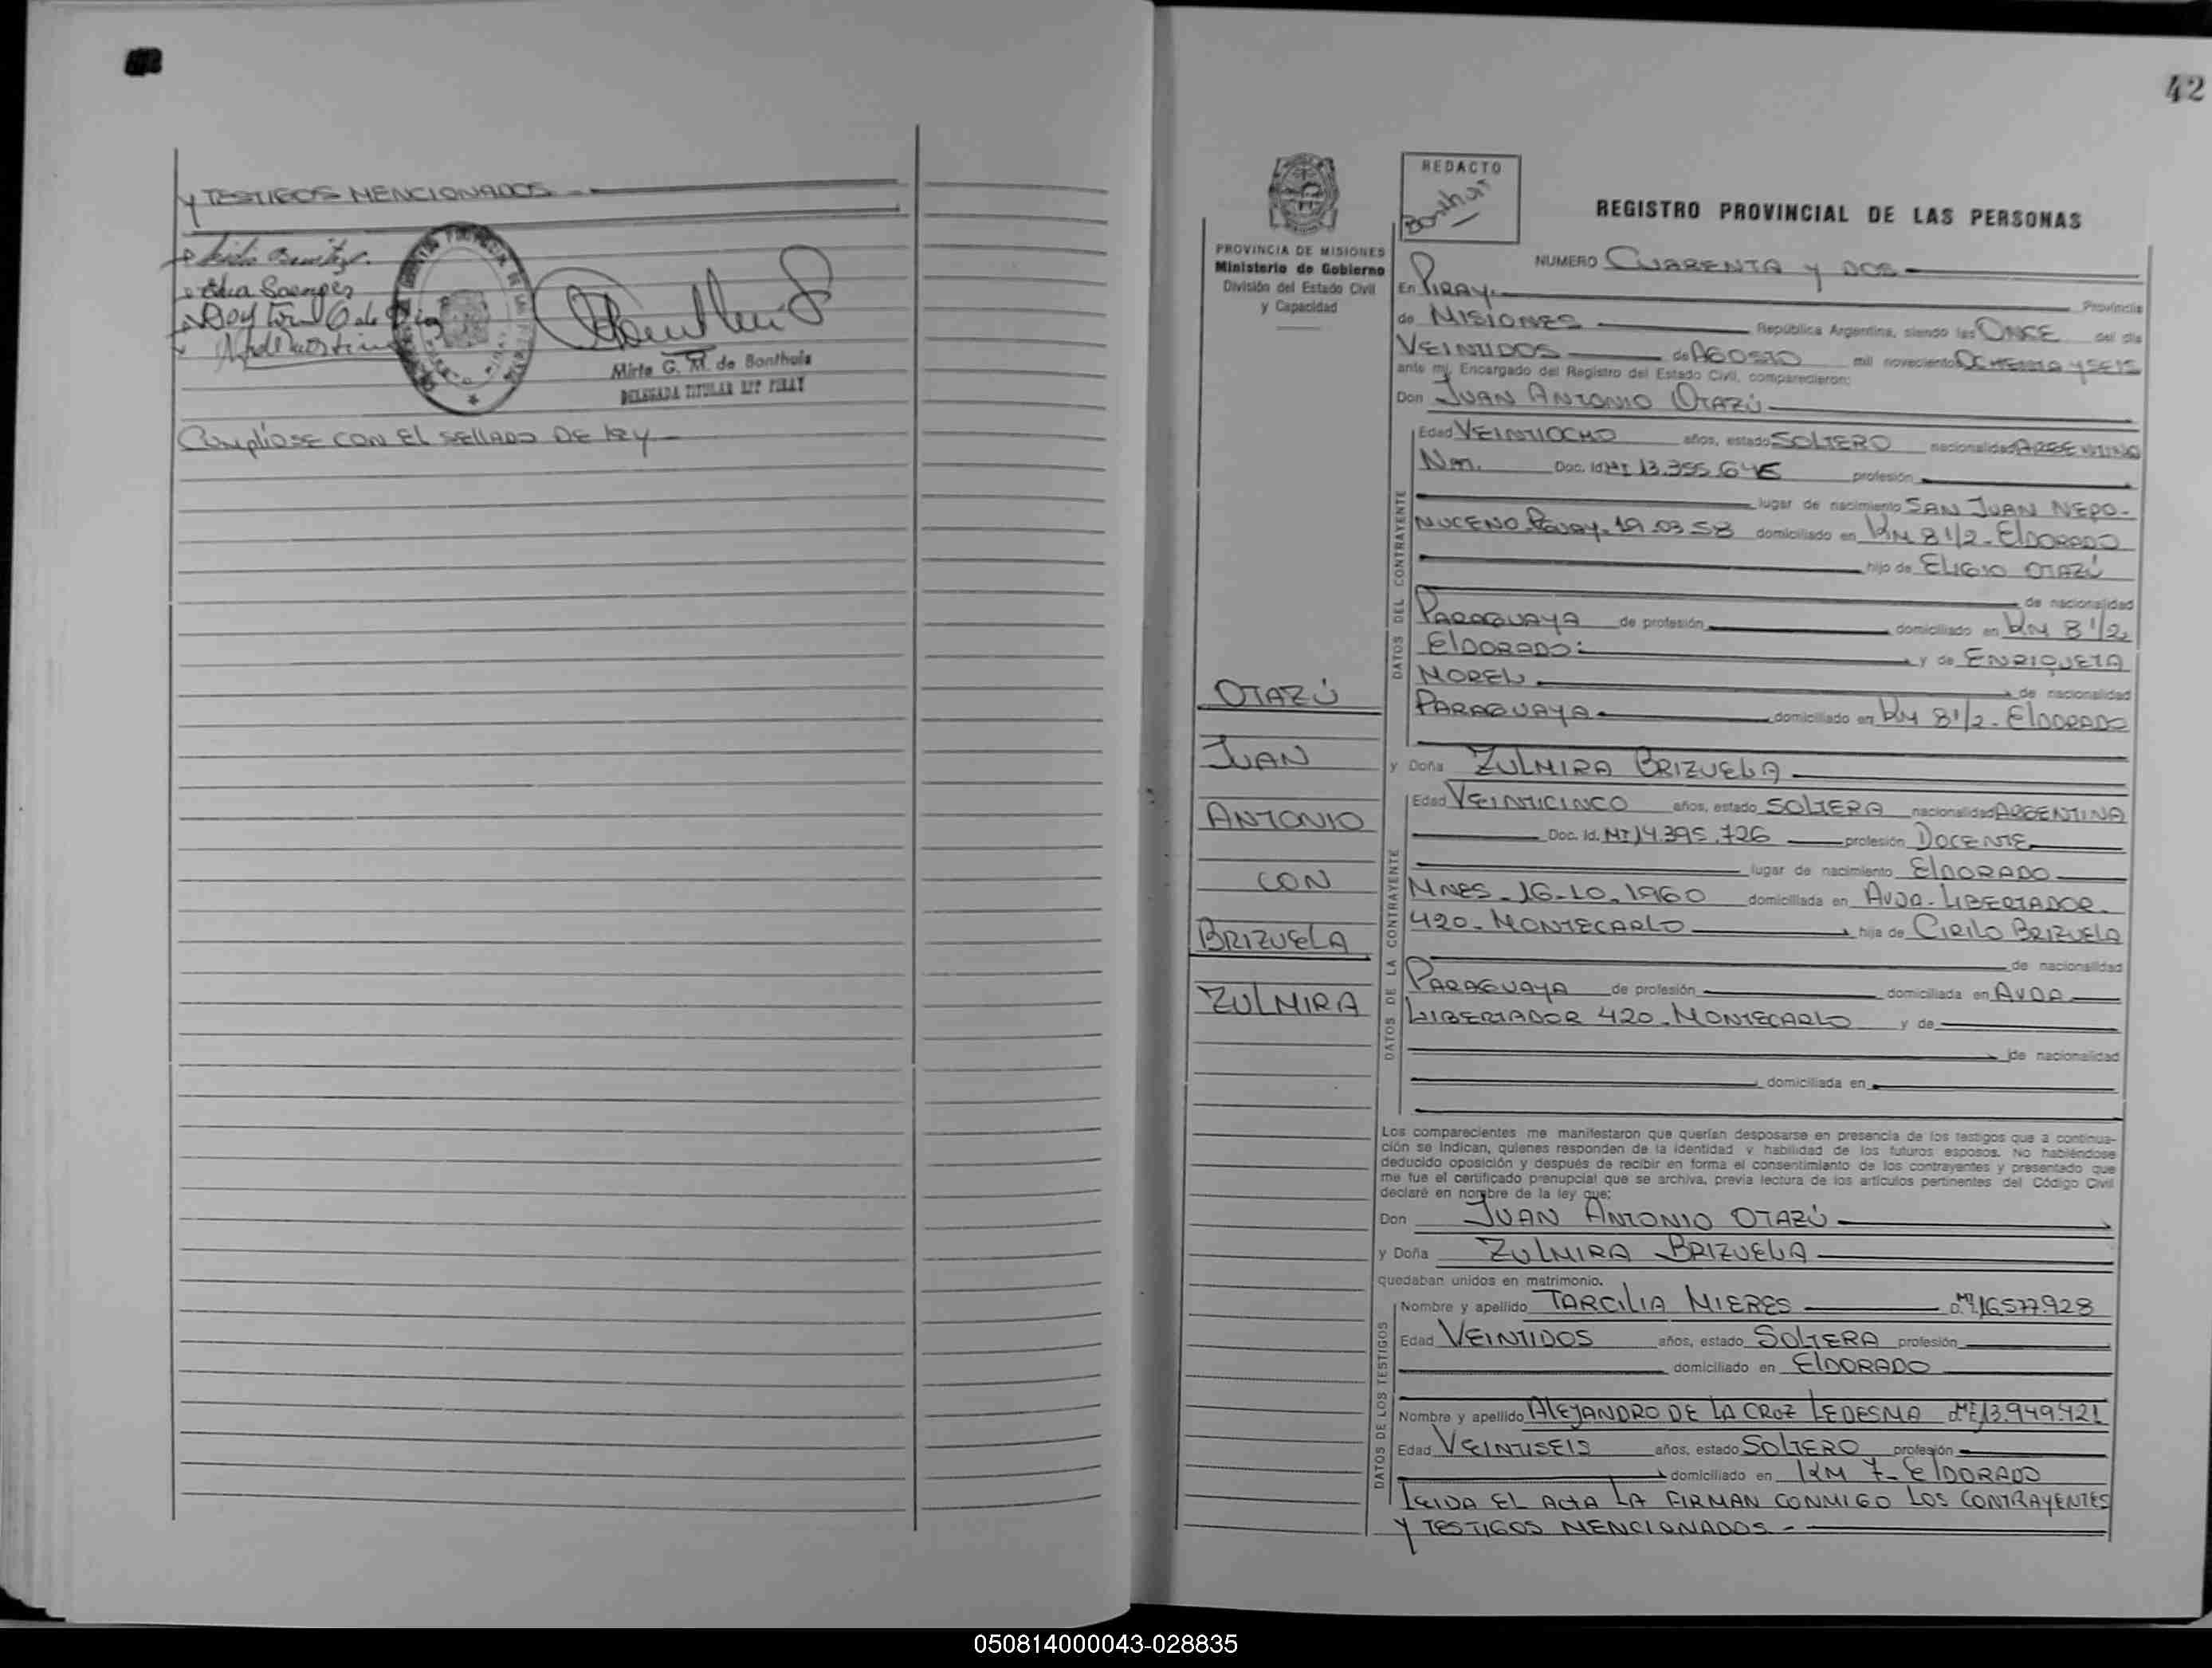 Y TESTIGOS MENCIONADOS -
Elsa
Mirta G. M. de Bonthuis
DELEGADA TITULAR PIRAY
Cumplióse CON El SELLADO DE lEY
42
PROVINCIA DE MISIONES
Ministerio de Gobierno
División del Estado Civil
y Capacidad
REDACTO
REGISTRO PROVINCIAL DE LAS PERSONAS
NUMERO CUARENTA Y DOS
En PIRAY Provincia
de MISIONES República Argentina, siendo las ONCE del día
VEINTIDOS de AGOSTO mil novecientos OCHENTA Y SEIS
ante mí, Encargado del Registro del Estado Civil, comparecieron:
Don JUAN ANTONIO OTAZÚ
DATOS DEL CONTRAYENTE
Edad VEINTIOCHO años, estado SOLTERO nacionalidad ARGENTINO
Doc. Id. MI 13.355.645 profesión
lugar de nacimiento SAN JUAN NEPO-
MUCENO 19.03.58 domiciliado en KM 8 1/2 - ElDORADO
hijo de ELIGIO OTAZÚ
de nacionalidad
PARAGUAYA de profesión domiciliado en KM 8 1/2
ElDORADO y de ENRIQUETA
MOREL de nacionalidad
PARAGUAYA domiciliado en KM 8 1/2 - ElDORADO
y Doña ZULMIRA BRIZUELA
DATOS DE LA CONTRAYENTE
Edad VEINTICINCO años, estado SOLTERA nacionalidad ARGENTINA
Doc. Id. MI 14.395.726 profesión DOCENTE
lugar de nacimiento ElDORADO
MNES - 16-10-1960 domiciliada en AVDA. LIBERTADOR
420 - MONTECARLO hija de CIRILO BRIZUELA
de nacionalidad
PARAGUAYA de profesión domiciliada en AVDA
LIBERTADOR 420 - MONTECARLO y de
de nacionalidad
domiciliada en
OTAZÚ
JUAN
ANTONIO
CON
BRIZUELA
ZULMIRA
Los comparecientes me manifestaron que querían desposarse en presencia de los testigos que a continua-
ción se indican, quienes responden de la identidad y habilidad de los futuros esposos. No habiéndose
deducido oposición y después de recibir en forma el consentimiento de los contrayentes y presentado que
me fue el certificado prenupcial que se archiva, previa lectura de los artículos pertinentes del Código Civil
declaré en nombre de la ley que:
Don JUAN ANTONIO OTAZÚ
y Doña ZULMIRA BRIZUELA
quedaban unidos en matrimonio.
DATOS DE LOS TESTIGOS
Nombre y apellido TARCILIA MIERES 16.577.928
Edad VEINTIDOS años, estado SOLTERA profesión
domiciliado en ElDORADO
Nombre y apellido AlEJANDRO DE LA CRUZ LEDESMA 13.949.421
Edad VEINTISEIS años, estado SOLTERO profesión
domiciliado en KM 7 - ElDORADO
LEIDA EL ACTA LA FIRMAN CONMIGO LOS CONTRAYENTES
Y TESTIGOS MENCIONADOS -
050814000043-028835